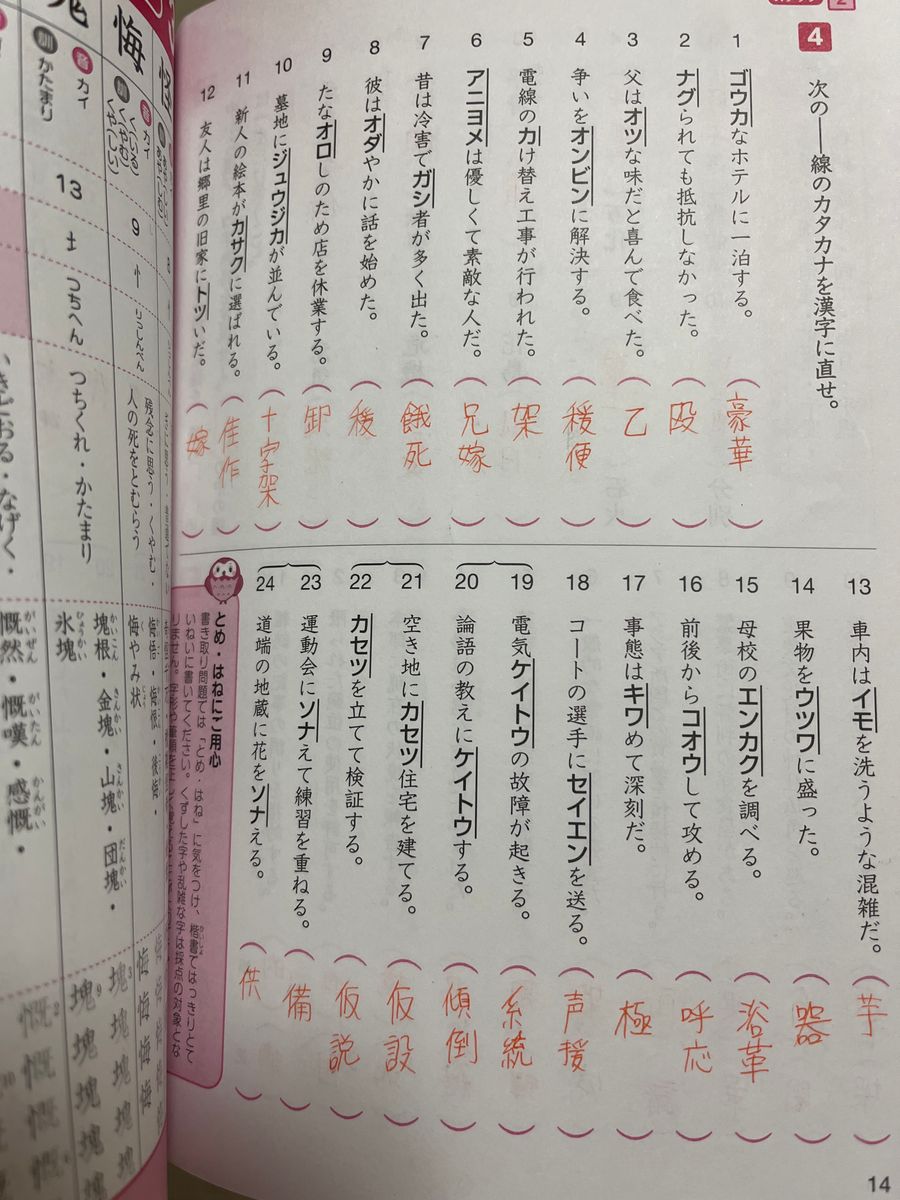 4 次の――線のカタカナを漢字に直せ。
1 ゴウカなホテルに一泊する。（豪華）
2 ナグられても抵抗しなかった。（殴）
3 父はオツな味だと喜んで食べた。（乙）
4 争いをオンビンに解決する。（穏便）
5 電線のカけ替え工事が行われた。（架）
6 アニヨメは優しくて素敵な人だ。（兄嫁）
7 昔は冷害でガシ者が多く出た。（餓死）
8 彼はオダやかに話を始めた。（穏）
9 たなオロしのため店を休業する。（卸）
10 墓地にジュウジカが並んでいる。（十字架）
11 新人の絵本がカサクに選ばれる。（佳作）
12 友人は郷里の旧家にトツいだ。（嫁）
13 車内はイモを洗うような混雑だ。（芋）
14 果物をウツワに盛った。（器）
15 母校のエンカクを調べる。（浴革）
16 前後からコオウして攻める。（呼応）
17 事態はキワめて深刻だ。（極）
18 コートの選手にセイエンを送る。（声援）
19 電気ケイトウの故障が起きる。（系統）
20 論語の教えにケイトウする。（傾倒）
21 空き地にカセツ住宅を建てる。（仮設）
22 カセツを立てて検証する。（仮説）
23 運動会にソナえて練習を重ねる。（備）
24 道端の地蔵に花をソナえる。（供）
とめ・はねにご用心
書き取り問題では「とめ・はね」に気をつけ、楷書ではっきりとて
いねいに書いてください。くずした字や乱雑な字は採点の対象とな
りません。
14
悔
音 カイ
訓 く（いる） く（やむ） くや（しい）
9
忄 りっしんべん
残念に思う・くやむ・
人の死をとむらう
悔悟・悔恨・後悔・
悔やみ状
悔 悔 悔
音 カイ
訓 かたまり
13
土 つちへん
つちくれ・かたまり
塊根・金塊・山塊・団塊・
氷塊
塊 塊 塊 塊
塊 塊 塊
いきどおる・なげく・
慨然・慨嘆・感慨・
慨 慨 慨